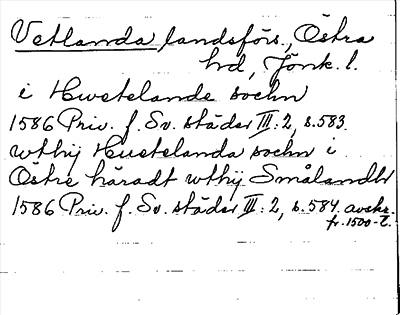 Vetlanda landsförs., Östra
hd, Jönk. l.
i Hwetelande sochn
1586 Priv. f. Sv. städer III: 2, s. 583.
wthij Huetelanda sochn i
Östre häradt wthij Smålandh
1586 Priv. f. Sv. städer III: 2, s. 584. avskr.
fr. 1500-t.